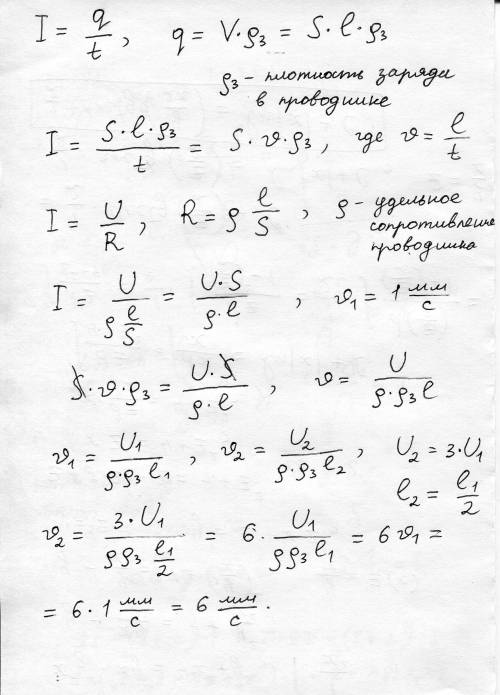 I = q/t, q = V·ρ₃ = S·l·ρ₃
ρ₃ - плотность заряда
в проводнике
I = S·l·ρ₃/t = S·v·ρ₃, где v = l/t
I = U/R, R = ρ l/S, ρ - удельное
сопротивление
проводника
I = U/(ρ l/S) = U·S/(ρ·l), v₁ = 1 мм/с
S·v·ρ₃ = U·S/(ρ·l), v = U/(ρ·ρ₃l)
v₁ = U₁/(ρ·ρ₃l₁), v₂ = U₂/(ρ·ρ₃l₂), U₂ = 3·U₁
l₂ = l₁/2
v₂ = 3·U₁/(ρρ₃ l₁/2) = 6· U₁/(ρρ₃l₁) = 6v₁ =
= 6·1 мм/с = 6 мм/с.